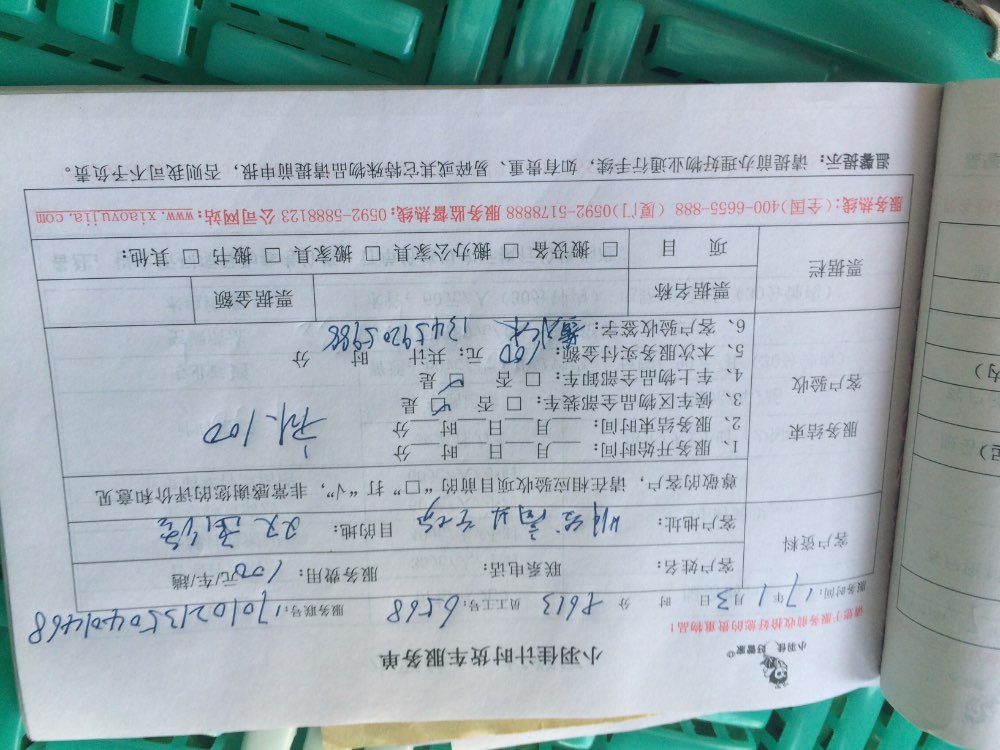 小羽佳 好管家
小羽佳计时货车服务单
请您于服务前收拾好您的贵重物品!
服务时间: 17年1月3日 时 分 员工工号: 6568 服务联号:
客户资料
客户姓名: 联系电话: 服务费用: 100元/车/趟
客户地址: 目的地:
尊敬的客户,请在相应验收项目前的“□”打“√”,非常感谢您的评价和意见
服务结束
客户验收
1、服务开始时间: 月 日 时 分
2、服务结束时间: 月 日 时 分
3、候车区物品全部装车: □ 否 ☑ 是
4、车上物品全部卸车: □ 否 ☑ 是
5、本次服务实付金额: 100 元; 共计 时 分
6、客户验收签字: 13459205988
票据栏
票据名称 票据金额
项 目 □ 搬设备 □ 搬办公家具 □ 搬家具 □ 搬书 □ 其他:
服务热线:(全国)400-6655-888 (厦门)0592-5178888 服务监督热线:0592-5888123 公司网站:www.xiaoyujia.com
温馨提示: 请提前办理好物业通行手续,如有贵重、易碎或其它特殊物品请提前申报,否则我司不予负责。